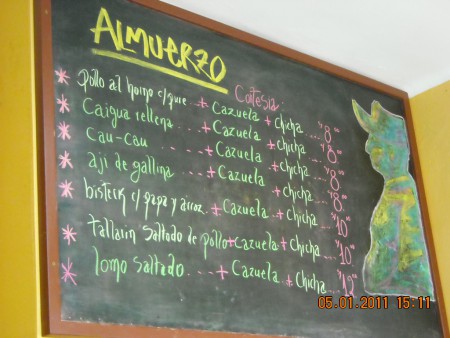 ALMUERZO
Cortesia:
* pollo al horno c/pure + Cazuela + chicha ... S/ 8.00
* Caigua rellena ... + Cazuela + chicha ... S/ 8.00
* Cau-Cau ... + Cazuela + chicha ... S/ 8.00
* aji de gallina ... + Cazuela + chicha ... S/ 8.00
* bisteck c/papa y arroz .. + Cazuela + Chicha ... S/ 10.00
* tallarin saltado de pollo + Cazuela + Chicha ... S/ 10.00
* lomo saltado ... + Cazuela + Chicha ... S/ 12.00
05.01.2011 15:11